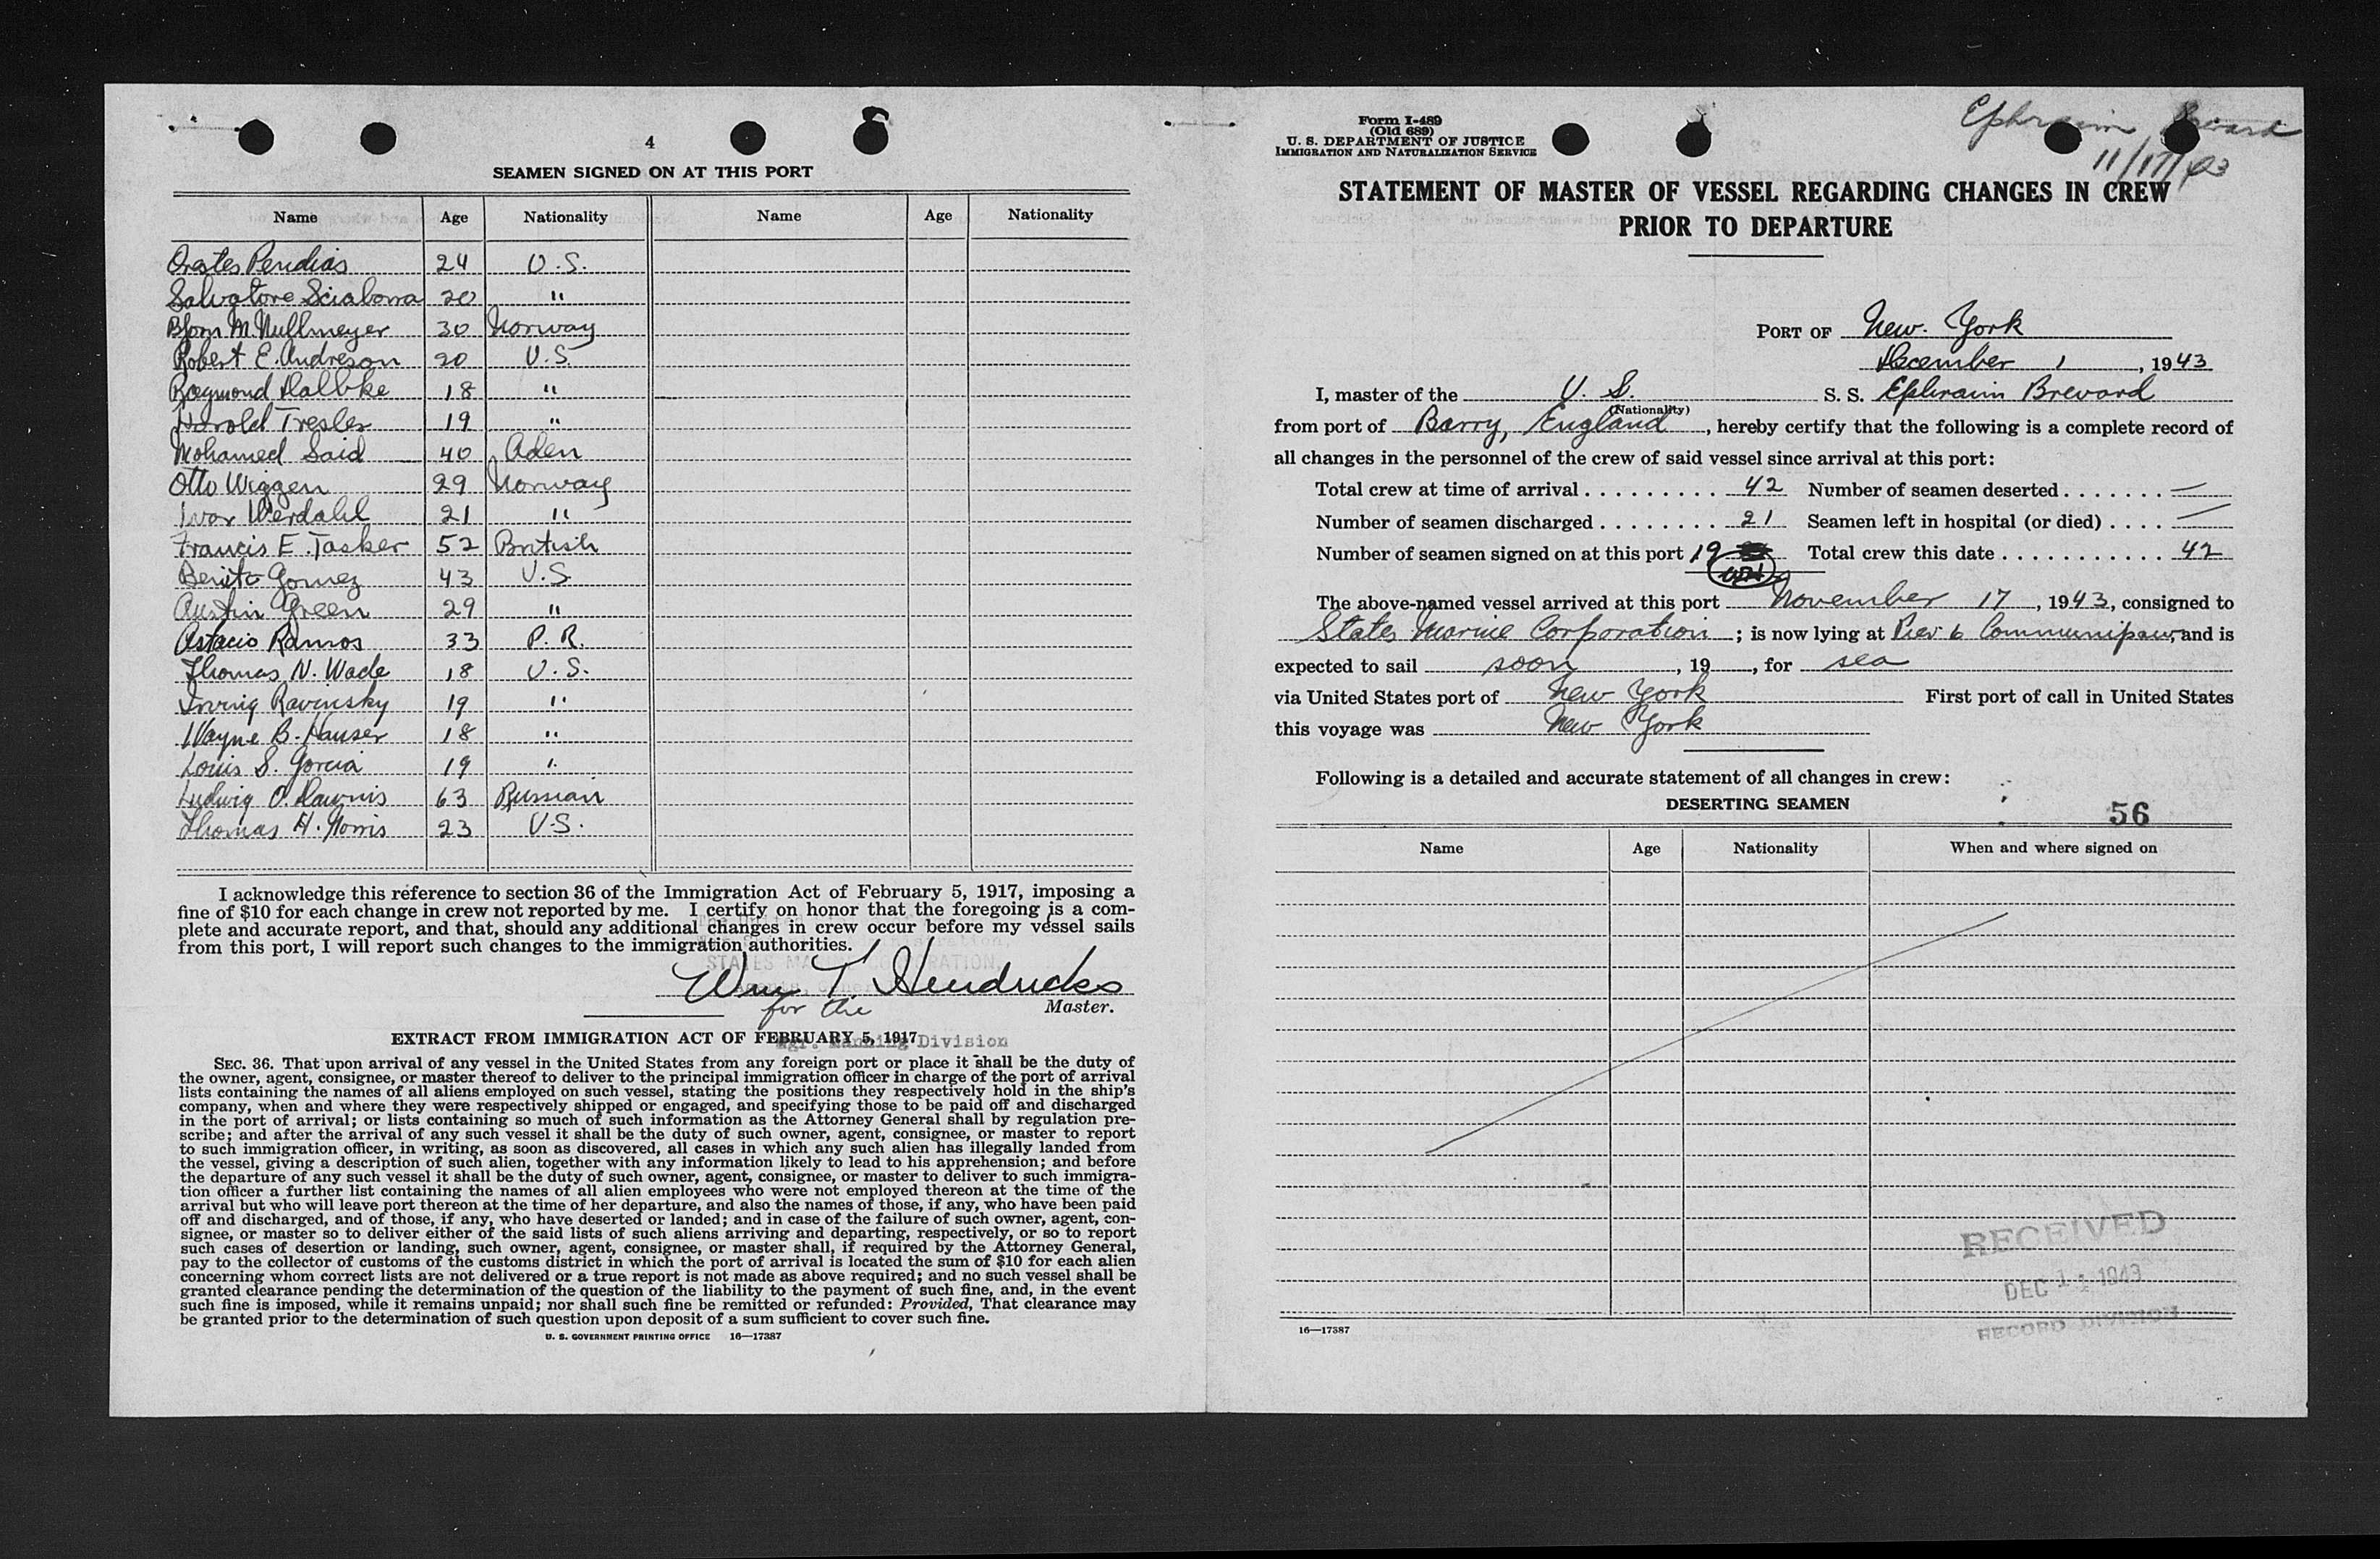 4
SEAMEN SIGNED ON AT THIS PORT
Name Age Nationality Name Age Nationality
Orestes Peridias 24 U.S.
Salvatore Sciabarra 20 "
Bjorn M. Nullmeyer 30 Norway
Robert E. Andreson 20 U.S.
Raymond Halbke 18 "
Harold Tresler 19 "
Mohamed Said 40 Aden
Otto Wiggen 29 Norway
Ivar Werdahl 21 "
Francis E. Tasker 52 British
Benito Gomez 43 U.S.
Austin Green 29 "
Astacio Ramos 33 P.R.
Thomas N. Wade 18 U.S.
Irving Ravinsky 19 "
Wayne B. Hauser 18 "
Louis S. Garcia 19 "
Ludwig O. 63 Russian
Thomas H. Norris 23 U.S.
I acknowledge this reference to section 36 of the Immigration Act of February 5, 1917, imposing a
fine of $10 for each change in crew not reported by me. I certify on honor that the foregoing is a com-
plete and accurate report, and that, should any additional changes in crew occur before my vessel sails
from this port, I will report such changes to the immigration authorities.
STATES MARINE CORPORATION,
Wm T. Hendricks
for the Master.
EXTRACT FROM IMMIGRATION ACT OF FEBRUARY 5, 1917
Mgr. Manning Division
SEC. 36. That upon arrival of any vessel in the United States from any foreign port or place it shall be the duty of
the owner, agent, consignee, or master thereof to deliver to the principal immigration officer in charge of the port of arrival
lists containing the names of all aliens employed on such vessel, stating the positions they respectively hold in the ship's
company, when and where they were respectively shipped or engaged, and specifying those to be paid off and discharged
in the port of arrival; or lists containing so much of such information as the Attorney General shall by regulation pre-
scribe; and after the arrival of any such vessel it shall be the duty of such owner, agent, consignee, or master to report
to such immigration officer, in writing, as soon as discovered, all cases in which any such alien has illegally landed from
the vessel, giving a description of such alien, together with any information likely to lead to his apprehension; and before
the departure of any such vessel it shall be the duty of such owner, agent, consignee, or master to deliver to such immigra-
tion officer a further list containing the names of all alien employees who were not employed thereon at the time of the
arrival but who will leave port thereon at the time of her departure, and also the names of those, if any, who have been paid
off and discharged, and of those, if any, who have deserted or landed; and in case of the failure of such owner, agent, con-
signee, or master so to deliver either of the said lists of such aliens arriving and departing, respectively, or so to report
such cases of desertion or landing, such owner, agent, consignee, or master shall, if required by the Attorney General,
pay to the collector of customs of the customs district in which the port of arrival is located the sum of $10 for each alien
concerning whom correct lists are not delivered or a true report is not made as above required; and no such vessel shall be
granted clearance pending the determination of the question of the liability to the payment of such fine, and, in the event
such fine is imposed, while it remains unpaid; nor shall such fine be remitted or refunded: Provided, That clearance may
be granted prior to the determination of such question upon deposit of a sum sufficient to cover such fine.
U. S. GOVERNMENT PRINTING OFFICE 16—17387
Form I-489
(Old 689)
U. S. DEPARTMENT OF JUSTICE
IMMIGRATION AND NATURALIZATION SERVICE
Ephraim Brevard
11/17/43
STATEMENT OF MASTER OF VESSEL REGARDING CHANGES IN CREW
PRIOR TO DEPARTURE
PORT OF New York
December 1, 1943
I, master of the U. S. S. S. Ephraim Brevard
(Nationality)
from port of Barry, England, hereby certify that the following is a complete record of
all changes in the personnel of the crew of said vessel since arrival at this port:
Total crew at time of arrival . . . . . . . . . 42 Number of seamen deserted . . . . . . . —
Number of seamen discharged . . . . . . . . 21 Seamen left in hospital (or died) . . . . —
Number of seamen signed on at this port 19 Total crew this date . . . . . . . . . . . 42
The above-named vessel arrived at this port November 17, 1943, consigned to
States Marine Corporation; is now lying at Pier 6 Communipaw, and is
expected to sail soon, 19__, for sea
via United States port of New York First port of call in United States
this voyage was New York
Following is a detailed and accurate statement of all changes in crew:
DESERTING SEAMEN
56
Name Age Nationality When and where signed on
RECEIVED
DEC 11 1943
RECORD DIVISION
16—17387